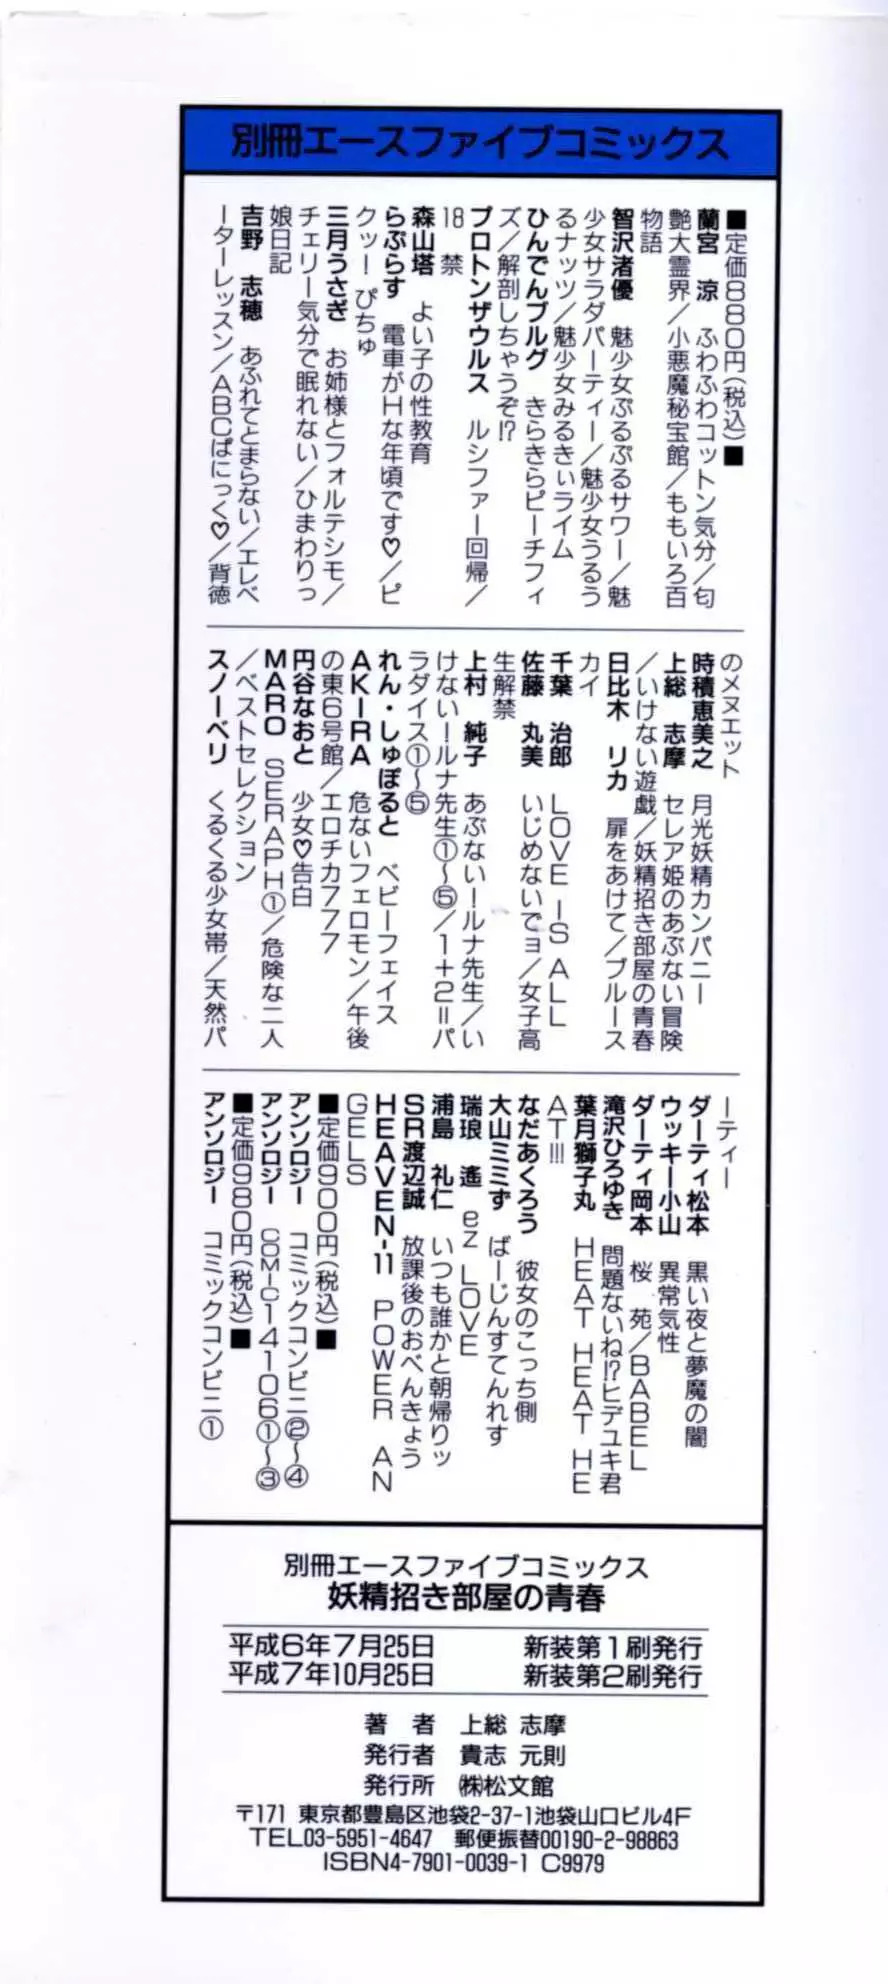 別冊エースファイブコミックス
■定価880円(税込)■
蘭宮　涼　ふわふわコットン気分／匂
艶大霊界／小悪魔秘宝館／ももいろ百
物語
智沢渚優　魅少女ぷるぷるサワー／魅
少女サラダパーティー／魅少女うるう
るナッツ／魅少女みるきぃライム
ひんでんブルグ　きらきらピーチフィ
ズ／解剖しちゃうぞ!?
プロトンザウルス　ルシファー回帰／
18　禁
森山塔　よい子の性教育
らぷらす　電車がHな年頃です♡／ピ
クッー ぴちゅ
三月うさぎ　お姉様とフォルテシモ／
チェリー気分で眠れない／ひまわりっ
娘日記
吉野　志穂　あふれてとまらない／エレベ
ーターレッスン／ABCぱにっく♡／背徳
のメヌエット
時積恵美之　月光妖精カンパニー
上総　志摩　セレア姫のあぶない冒険
／いけない遊戯／妖精招き部屋の青春
日比木　リカ　扉をあけて／ブルース
カイ
千葉　治郎　LOVE IS ALL
佐藤　丸美　いじめないでョ／女子高
生解禁
上村　純子　あぶない！ルナ先生／い
けない！ルナ先生①～⑤／1＋2＝パ
ラダイス①～⑤
れん・しゅぽると　ベビーフェイス
AKIRA　危ないフェロモン／午後
の東6号館／エロチカ777
円谷なおと　少女♡告白
MARO　SERAPH①／危険な二人
／ベストセレクション
スノーベリ　くるくる少女帯／天然パ
ーティー
ダーティ松本　黒い夜と夢魔の闇
ウッキー小山　異常気性
ダーティ岡本　桜　苑／BABEL
滝沢ひろゆき　問題ないね!?ヒデユキ君
葉月獅子丸　HEAT HEAT HE
AT!!!
なだあくろう　彼女のこっち側
大山ミミず　ばーじんすてんれす
瑞琅　遙　ez LOVE
浦島　礼仁　いつも誰かと朝帰りッ
SR渡辺誠　放課後のおべんきょう
HEAVEN-11　POWER AN
GELS
■定価900円(税込)■
アンソロジー　コミックコンビニ②～④
アンソロジー　COMIC14106①～③
■定価980円(税込)■
アンソロジー　コミックコンビニ①
別冊エースファイブコミックス
妖精招き部屋の青春
平成6年7月25日　新装第1刷発行
平成7年10月25日　新装第2刷発行
著　者　上総　志摩
発行者　貴志　元則
発行所　㈱松文館
〒171 東京都豊島区池袋2-37-1池袋山口ビル4F
TEL03-5951-4647　郵便振替00190-2-98863
ISBN4-7901-0039-1 C9979